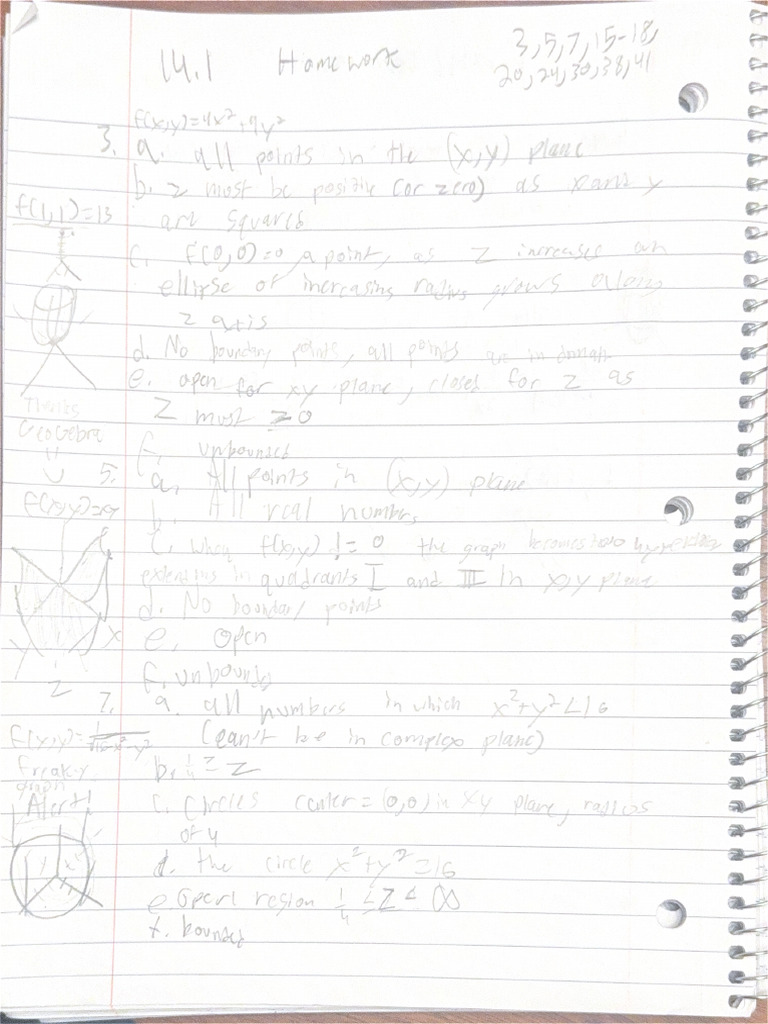 14.1 Homework
3,5,7,15-18,
20,24,30,38,41
f(x,y)=4x²+9y²
3. a. all points in the (x,y) plane
b. z must be positive (or zero) as x and y
are squared
f(1,1)=13
c. f(0,0)=0 a point, as z increases an
ellipse of increasing radius grows along
z axis
d. No boundary points, all points are in domain
e. open for xy plane, closed for z as
z must ≥0
Thanks
GeoGebra
f. unbounded
5. a. All points in (x,y) plane
b. All real numbers
f(x,y)=xy
c. when f(x,y) != 0 the graph becomes
extending in quadrants I and III in x,y plane
d. No boundary points
x
e. open
y
z
f. unbounded
7. a. all numbers in which x²+y²<16
f(x,y)=1/√16-x²-y²
(can't be in complex plane)
freaky
graph
Alert!
b. 1/4 ≤ z
c. circles center=(0,0) in xy plane, radius
of 4
y x
d. the circle x²+y²=16
e. Open region 1/4 ≤ z < ∞
f. bounded